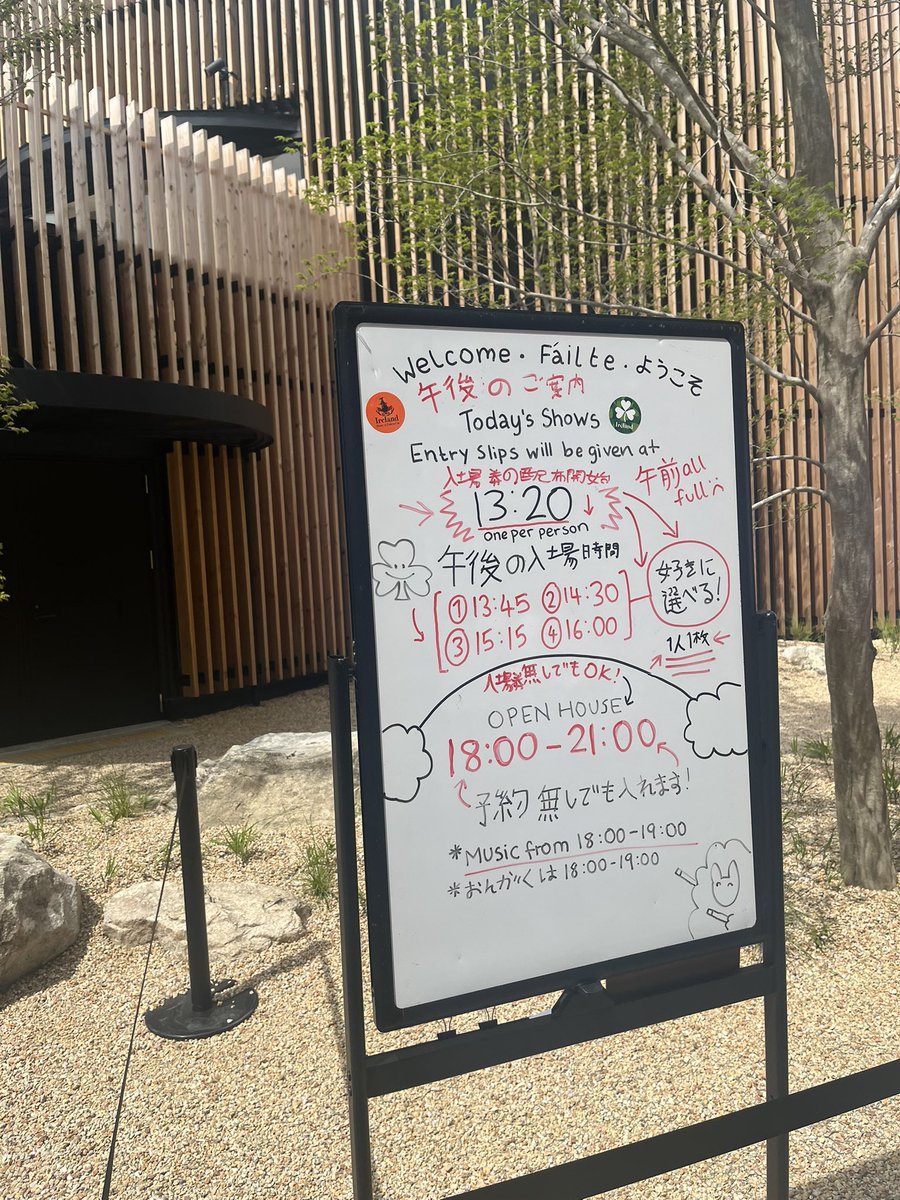 Welcome・Fáilte・ようこそ
午後のご案内
Ireland
Today's Shows
Ireland
Entry Slips will be given at
入場券の配布開始
午前all
full
13:20
one per person
午後の入場時間
好きに
選べる!
①13:45 ②14:30
③15:15 ④16:00
1人1枚
入場券無しでもOK!
OPEN HOUSE
18:00-21:00
予約無しでも入れます!
*Music from 18:00-19:00
*おんがくは18:00-19:00